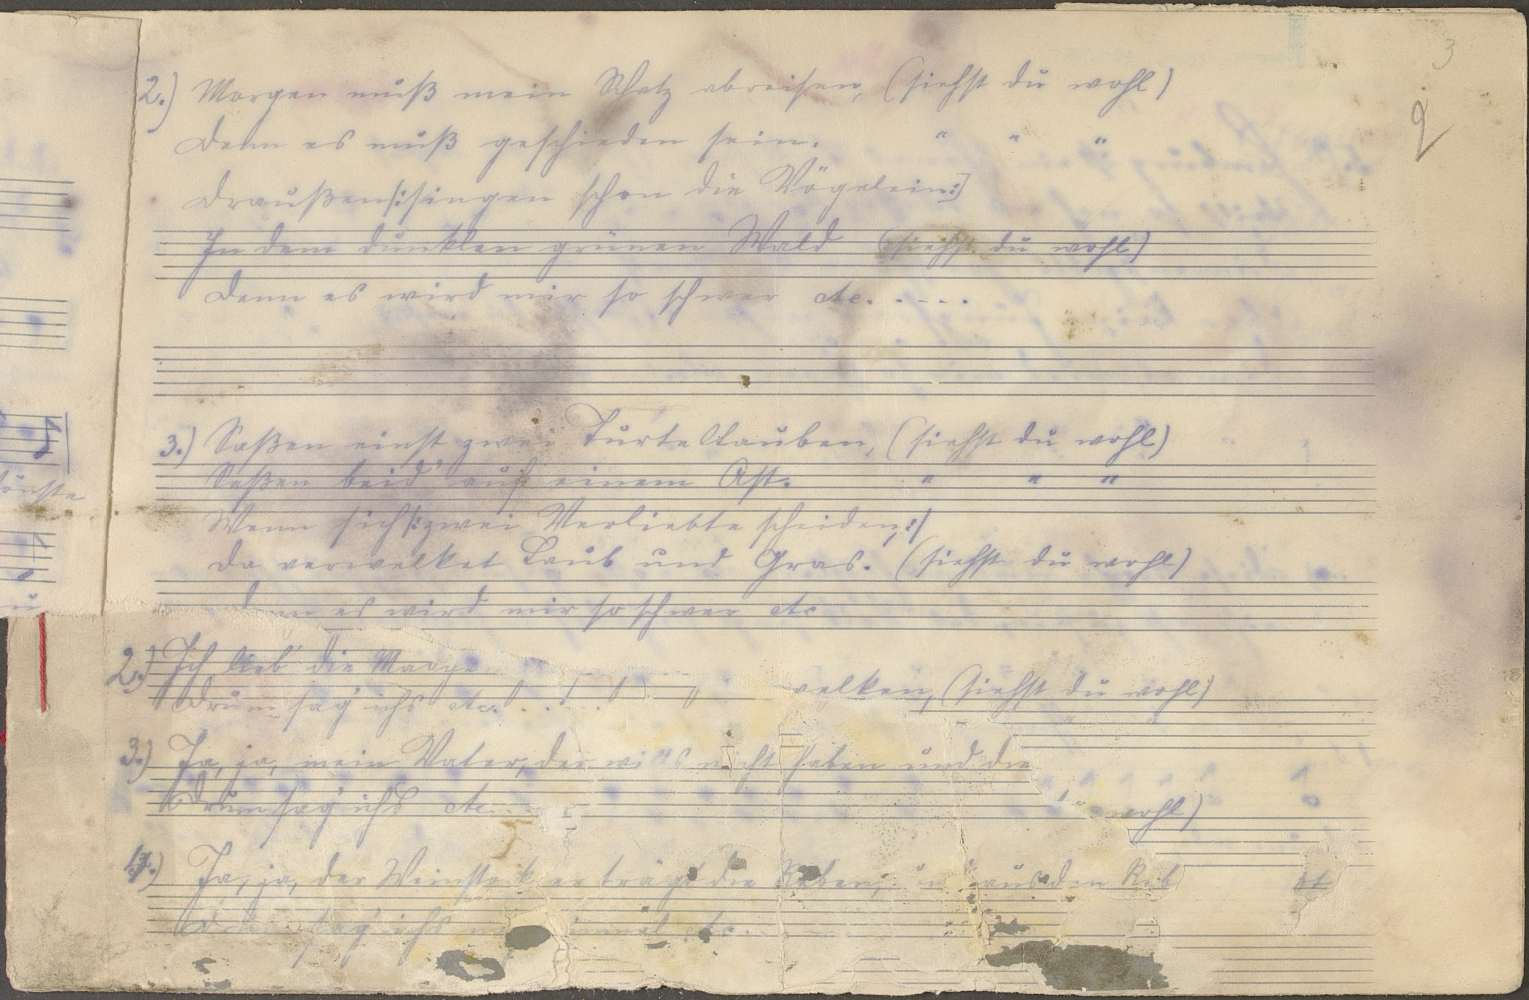 3
2
2.) Morgen muß mein Schatz abreisen, (siehst du wohl)
Denn es muß geschieden sein. " " "
Draußen |: singen schon die Vögelein :|
In dem dunklen grünen Wald (siehst du wohl)
Denn es wird mir so schwer etc. . . . .
3.) Saßen einst zwei Turteltauben, (siehst du wohl)
Saßen beid' auf einem Ast. " " "
Wenn sich |: zwei Verliebte scheiden, :|
Da verwelket Laub und Gras. (siehst du wohl)
denn es wird mir so schwer etc
2.) Ich lieb' die
welken, (siehst du wohl)
Drum sag ichs etc.
3.) Ja, ja, mein Vater, der wills nicht haben und die
Drum sag ichs etc.
wohl)
4.) Ja, ja, der Weinstock er trägt die Reben, aus den
Drum sag ichs etc.